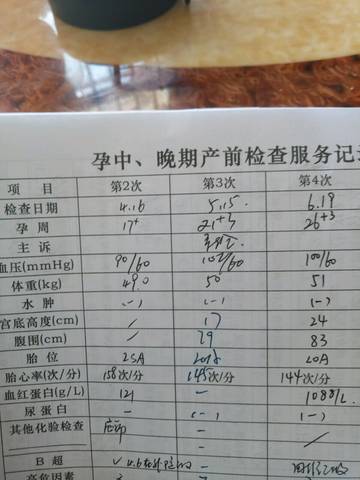 孕中、晚期产前检查服务记
项 目 第2次 第3次 第4次
检查日期 4.16 5.15. 6.19
孕 周 17+ 21+3 26+3
主 诉
血压(mmHg) 90/60 102/60 100/60
体重(kg) 49.0 50 51
水 肿 (-) (-) (-)
宫底高度(cm) / 17 24
腹围(cm) / 79 83
胎 位 LOA
胎心率(次/分) 158次/分 145次/分 144次/分
血红蛋白(g/L) 121 - 108g/L
尿蛋白 - (-) (-)
其他化验检查 - /
B 超 ✓ -
高危因素